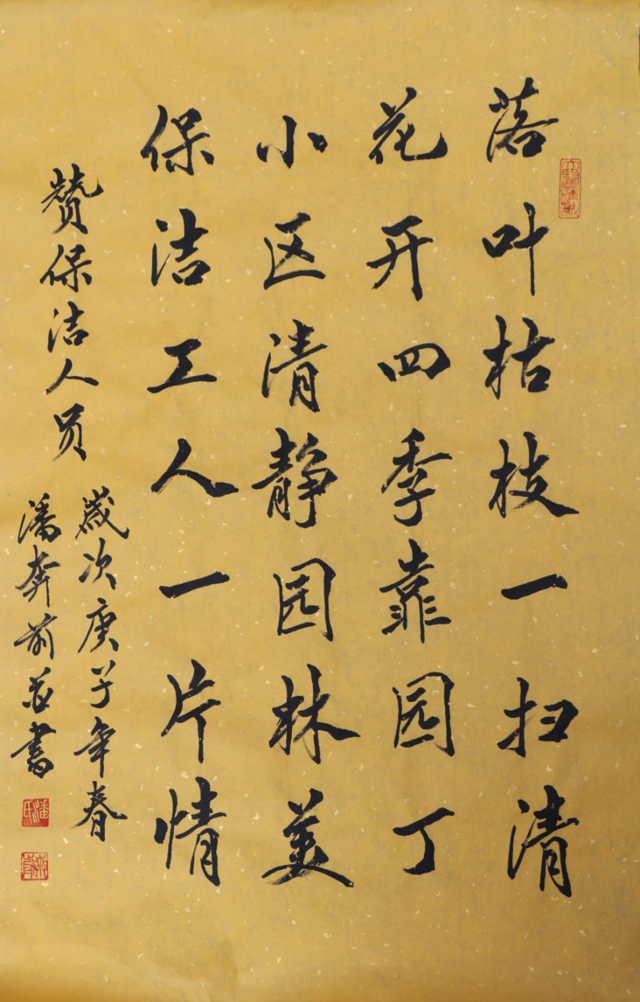 落叶枯枝一扫清
花开四季靠园丁
小区清静园林美
保洁工人一片情
赞保洁人员
岁次庚子年春
潘奔前并書